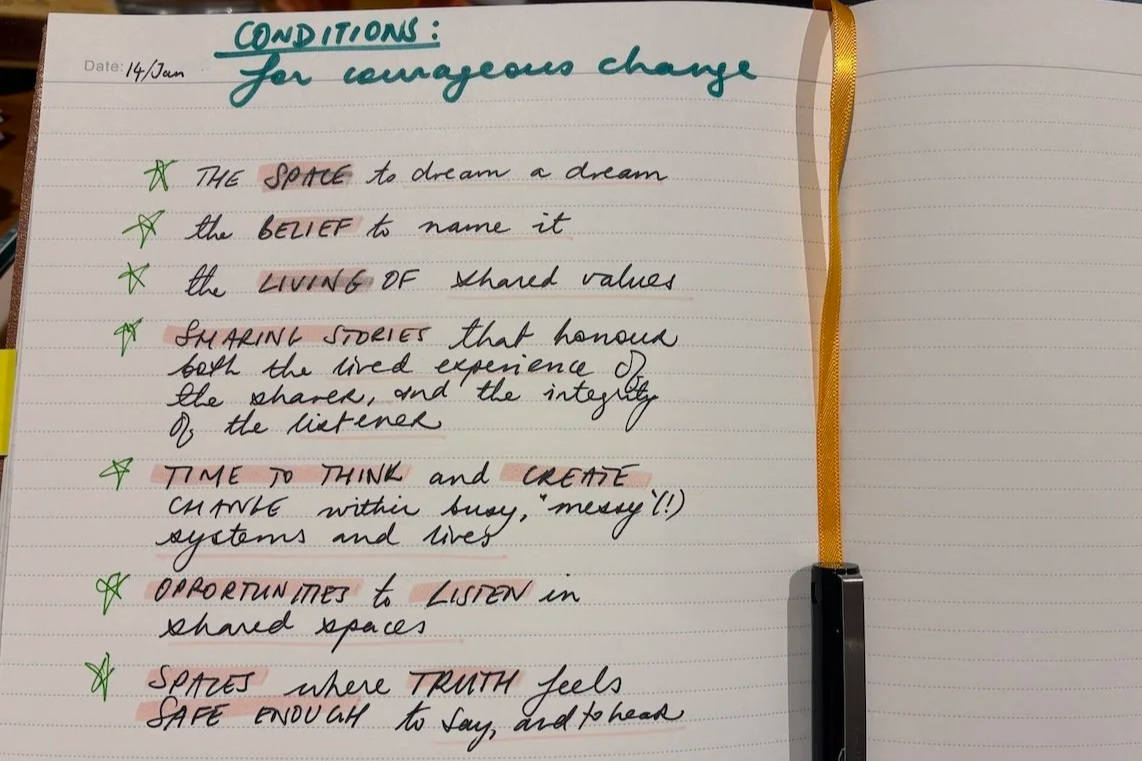 CONDITIONS:
Date: 14/Jan
for courageous change
THE SPACE to dream a dream
the BELIEF to name it
the LIVING OF shared values
SHARING STORIES that honour
both the lived experience of
the sharer, and the integrity
of the listener
TIME TO THINK and CREATE
CHANGE within busy, "messy"(!)
systems and lives
OPPORTUNITIES to LISTEN in
shared spaces
SPACES where TRUTH feels
SAFE ENOUGH to say, and to hear